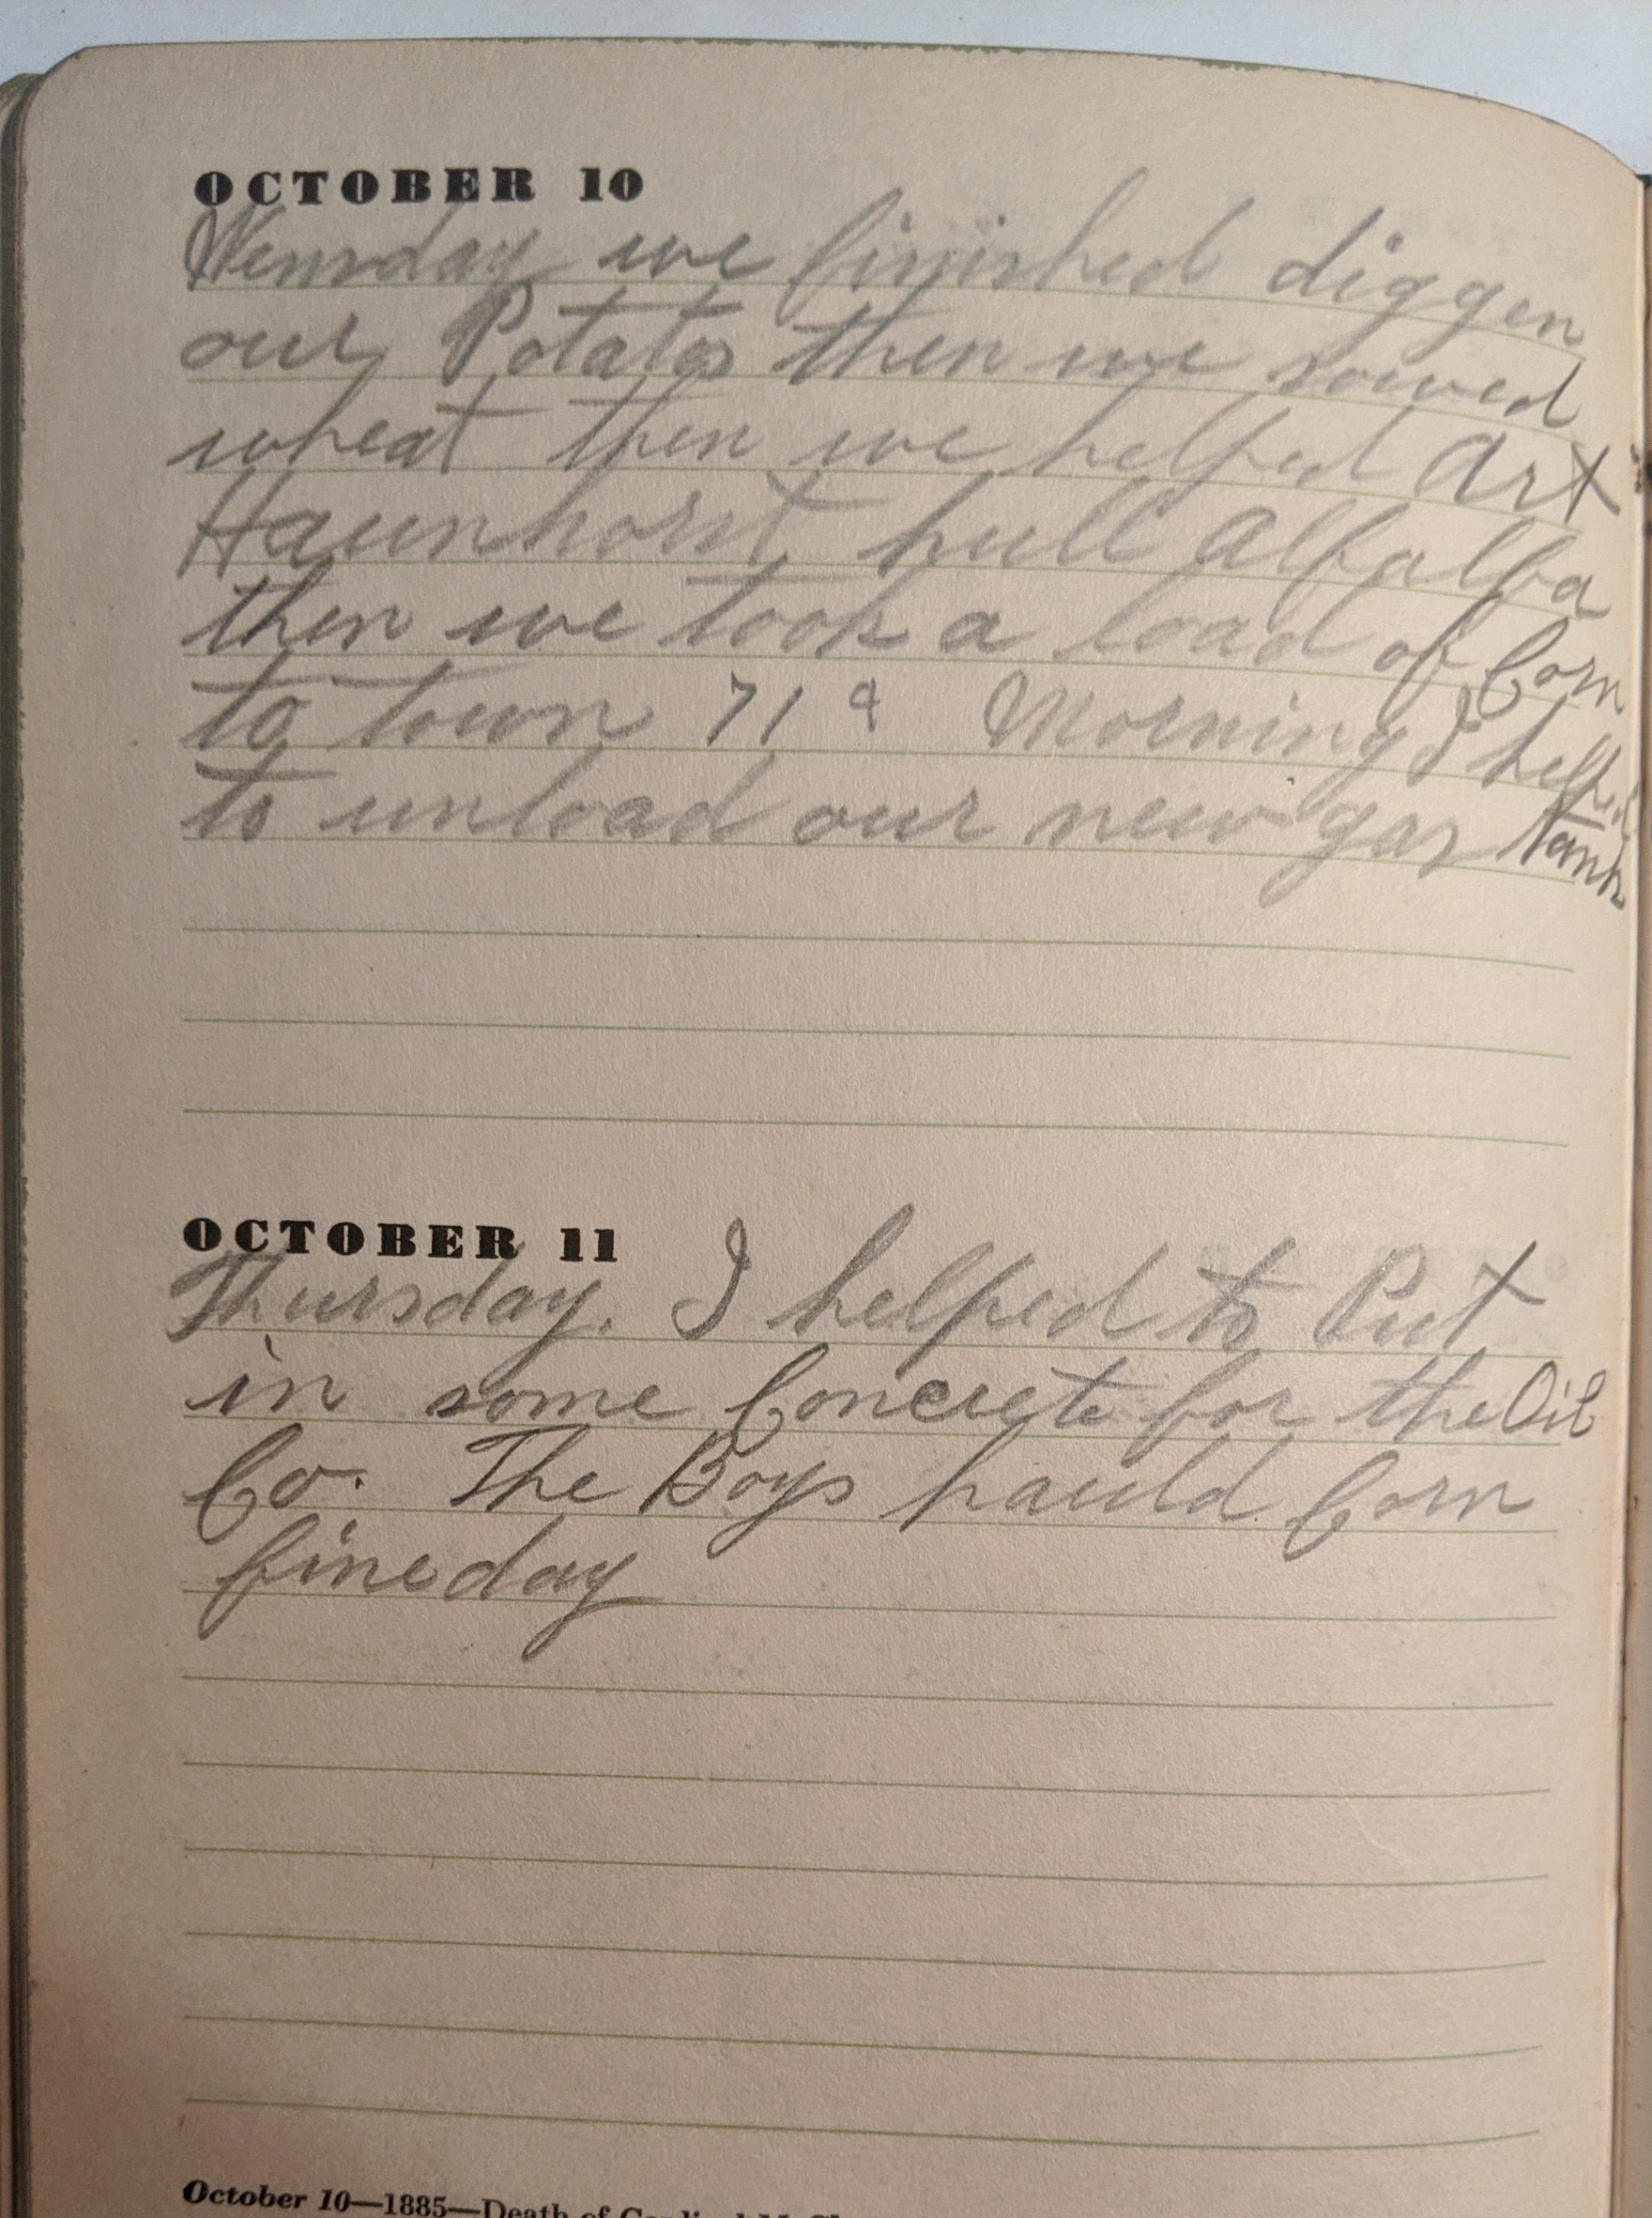 OCTOBER 10
Wensday we finished diggen
our Potatos then we sowed
wheat then we helped Art
Haunhorst hull Alfalfa
then we took a load of Corn
to town 71 ¢ Morning I helped
to unload our new gas tank
OCTOBER 11
Thursday. I helped to Put
in some Concrete for the Oil
Co. The Boys hauld Corn
fine day
October 10—1885—Death of Cardinal